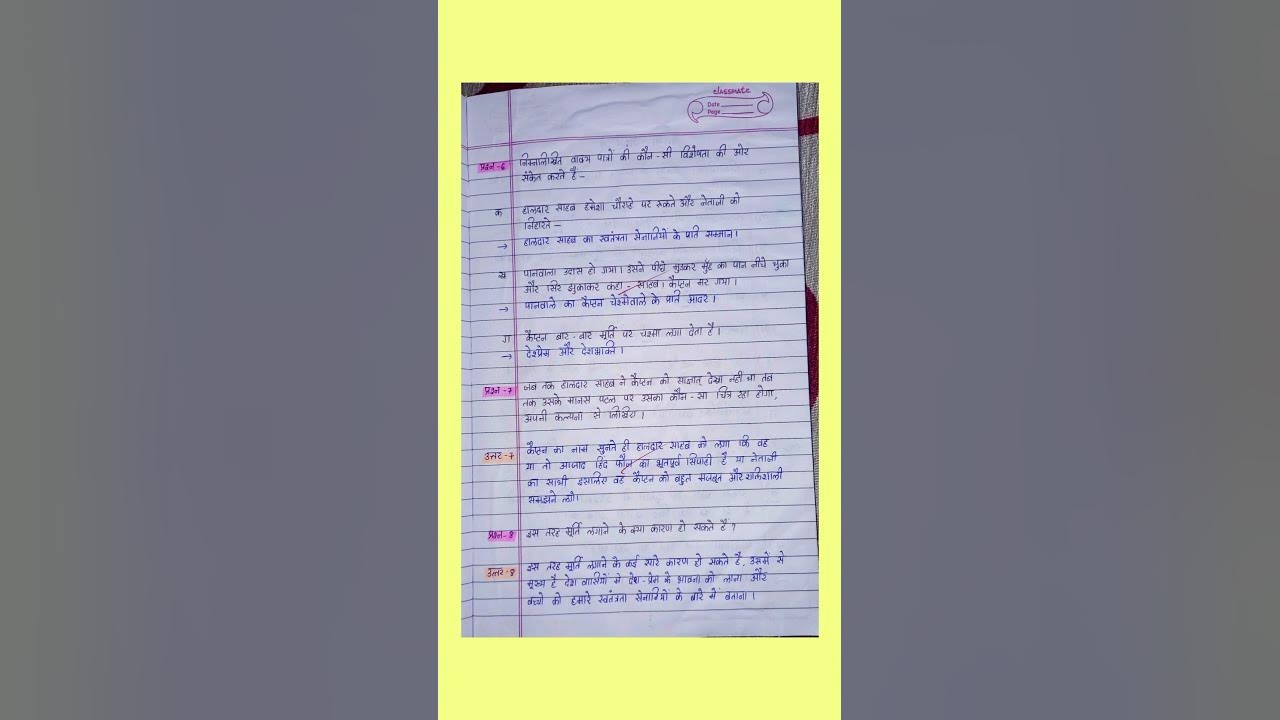 classmate
Date
Page
प्रश्न-6 निम्नलिखित वाक्य पात्रों की कौन-सी विशेषता की ओर
संकेत करते है-
क हालदार साहब हमेशा चौराहे पर रूकते और नेताजी को
निहारते-
→ हालदार साहब का स्वतंत्रता सेनानियों के प्रति सम्मान।
ख पानवाला उदास हो गया। उसने पीछे मुड़कर मुँह का पान नीचे थूका
और सिर झुकाकर कहा - साहब। कैप्टन मर गया।
→ पानवाले का कैप्टन चश्मेवाले के प्रति आदर।
ग कैप्टन बार-बार मूर्ति पर चश्मा लगा देता है।
→ देशप्रेम और देशभक्ति।
प्रश्न-7 जब तक हालदार साहब ने कैप्टन को साक्षात् देखा नहीं था तब
तक उसके मानस पटल पर उसका कौन-सा चित्र रहा होगा,
अपनी कल्पना से लिखिए।
उत्तर-7 कैप्टन का नाम सुनते ही हालदार साहब को लगा कि वह
या तो आजाद हिंद फौज का भूतपूर्व सिपाही है या नेताजी
का साथी इसलिए वह कैप्टन को बहुत मजबूत और शक्तिशाली
समझने लगे।
प्रश्न-8 इस तरह मूर्ति लगाने के क्या कारण हो सकते हैं?
उत्तर-8 इस तरह मूर्ति लगाने के कई सारे कारण हो सकते है, उसमें से
मुख्य है देश वासियों में देश-प्रेम के भावना को लाना और
बच्चो को हमारे स्वतंत्रता सेनानियों के बारे में बताना।